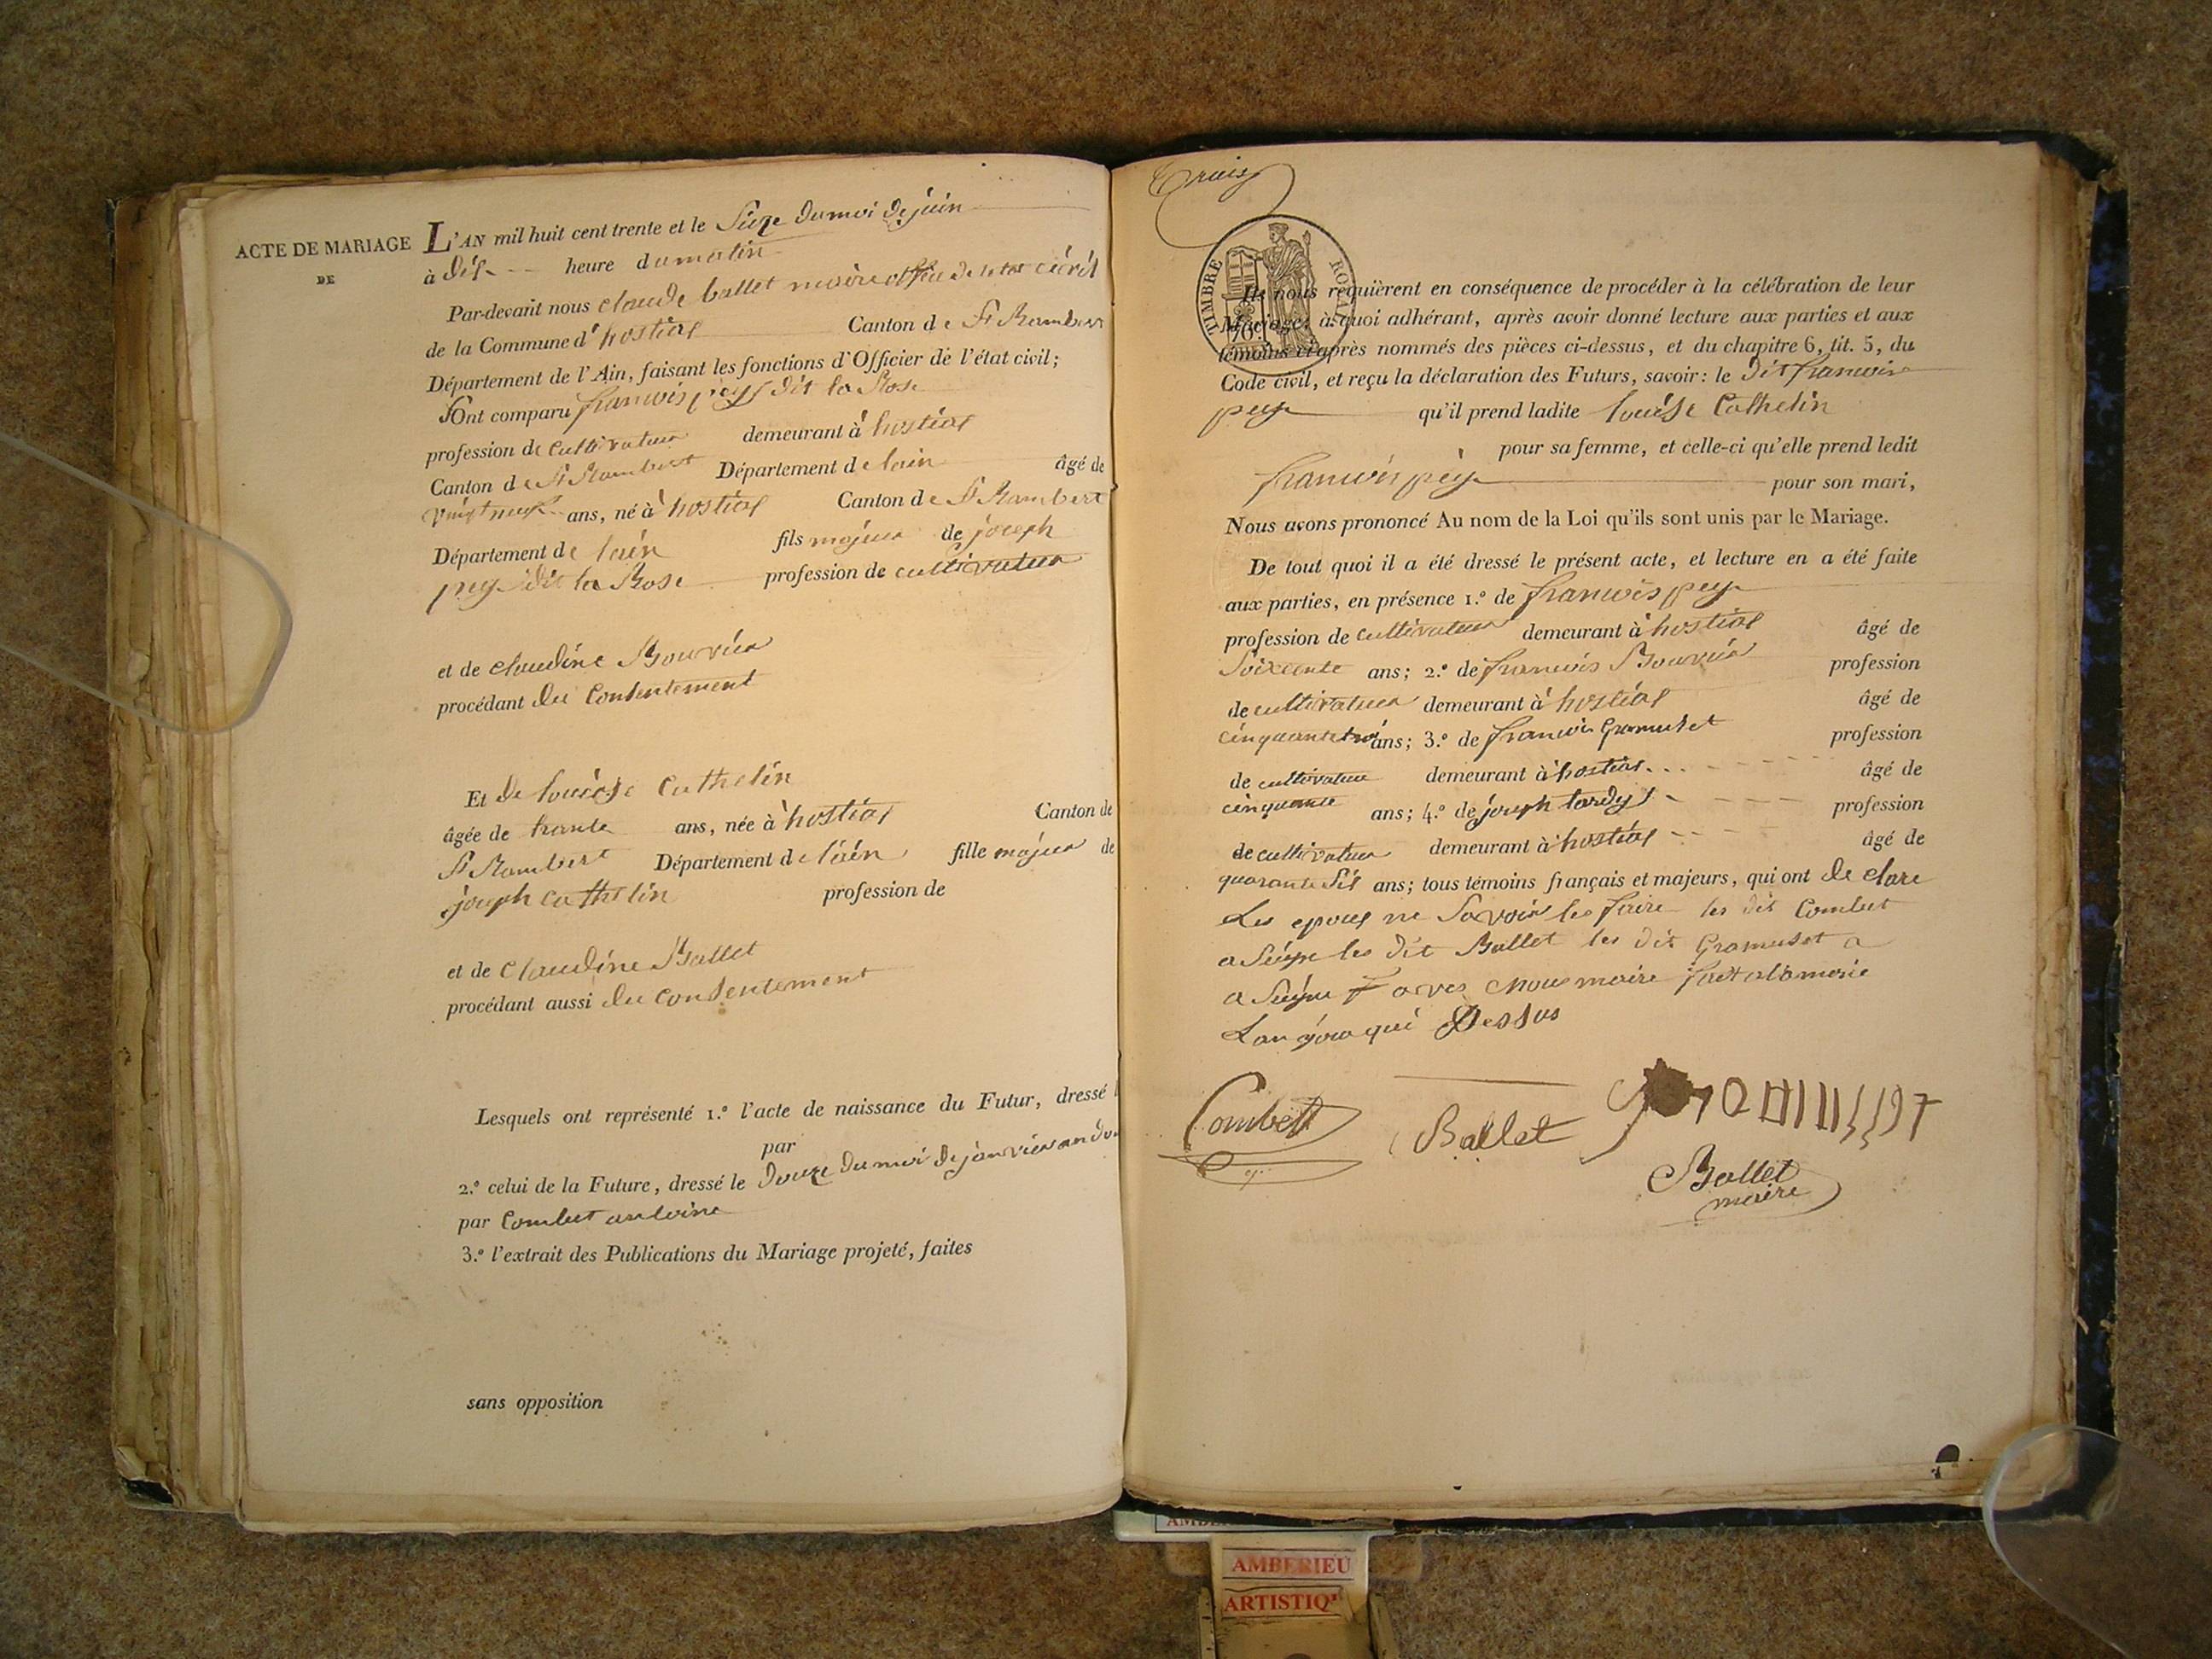 ACTE DE MARIAGE
DE
L'AN mil huit cent trente et le Sieze du moi de juin
à dis heure du matin
Par-devant nous claude ballet maire civil
de la Commune d'hostias Canton de St Rambert
Département de l'Ain, faisant les fonctions d'Officier de l'état civil;
Ont comparu francois pey dit la Rose
profession de cultivateur demeurant à hostias
Canton de St Rambert Département de lain âgé de
vingt neuf ans, né à hostias Canton de St Rambert
Département de lain fils majeur de joseph
pey dit la Rose profession de cultivateur
et de claudine Bouvier
procédant du Consentement
Et de louise Cathelin
âgée de trante ans, née à hostias Canton de
St Rambert Département de lain fille majeur de
joseph Cathelin profession de
et de Claudine Ballet
procédant aussi du consentement
Lesquels ont représenté 1.° l'acte de naissance du Futur, dressé
par
2.° celui de la Future, dressé le Douze du moi de janvier an
par Combet antoine
3.° l'extrait des Publications du Mariage projeté, faites
sans opposition
Trois
TIMBRE ROYAL
70
Ils nous requièrent en conséquence de procéder à la célébration de leur
Mariage; à quoi adhérant, après avoir donné lecture aux parties et aux
témoins ci-après nommés des pièces ci-dessus, et du chapitre 6, tit. 5, du
Code civil, et reçu la déclaration des Futurs, savoir: le dit francois
pey qu'il prend ladite louise Cathelin
pour sa femme, et celle-ci qu'elle prend ledit
francois pey pour son mari,
Nous avons prononcé Au nom de la Loi qu'ils sont unis par le Mariage.
De tout quoi il a été dressé le présent acte, et lecture en a été faite
aux parties, en présence 1.° de francois pey
profession de cultivateur demeurant à hostias âgé de
soixcente ans; 2.° de francois Bouvier profession
de cultivateur demeurant à hostias âgé de
cinquante trois ans; 3.° de francois Gramuset profession
de cultivateur demeurant à hostias âgé de
cinquante ans; 4.° de joseph tardy profession
de cultivateur demeurant à hostias âgé de
quarante sis ans; tous témoins français et majeurs, qui ont de clare
Les epous ne Savoir les faire les dit Combet
a Signe les dit Ballet les dit Gramuset a
a Signe avec nous maire fait a la merie
Lan jour que Dessus
Combet Ballet
Ballet
maire
AMBERIEU
ARTISTIQ